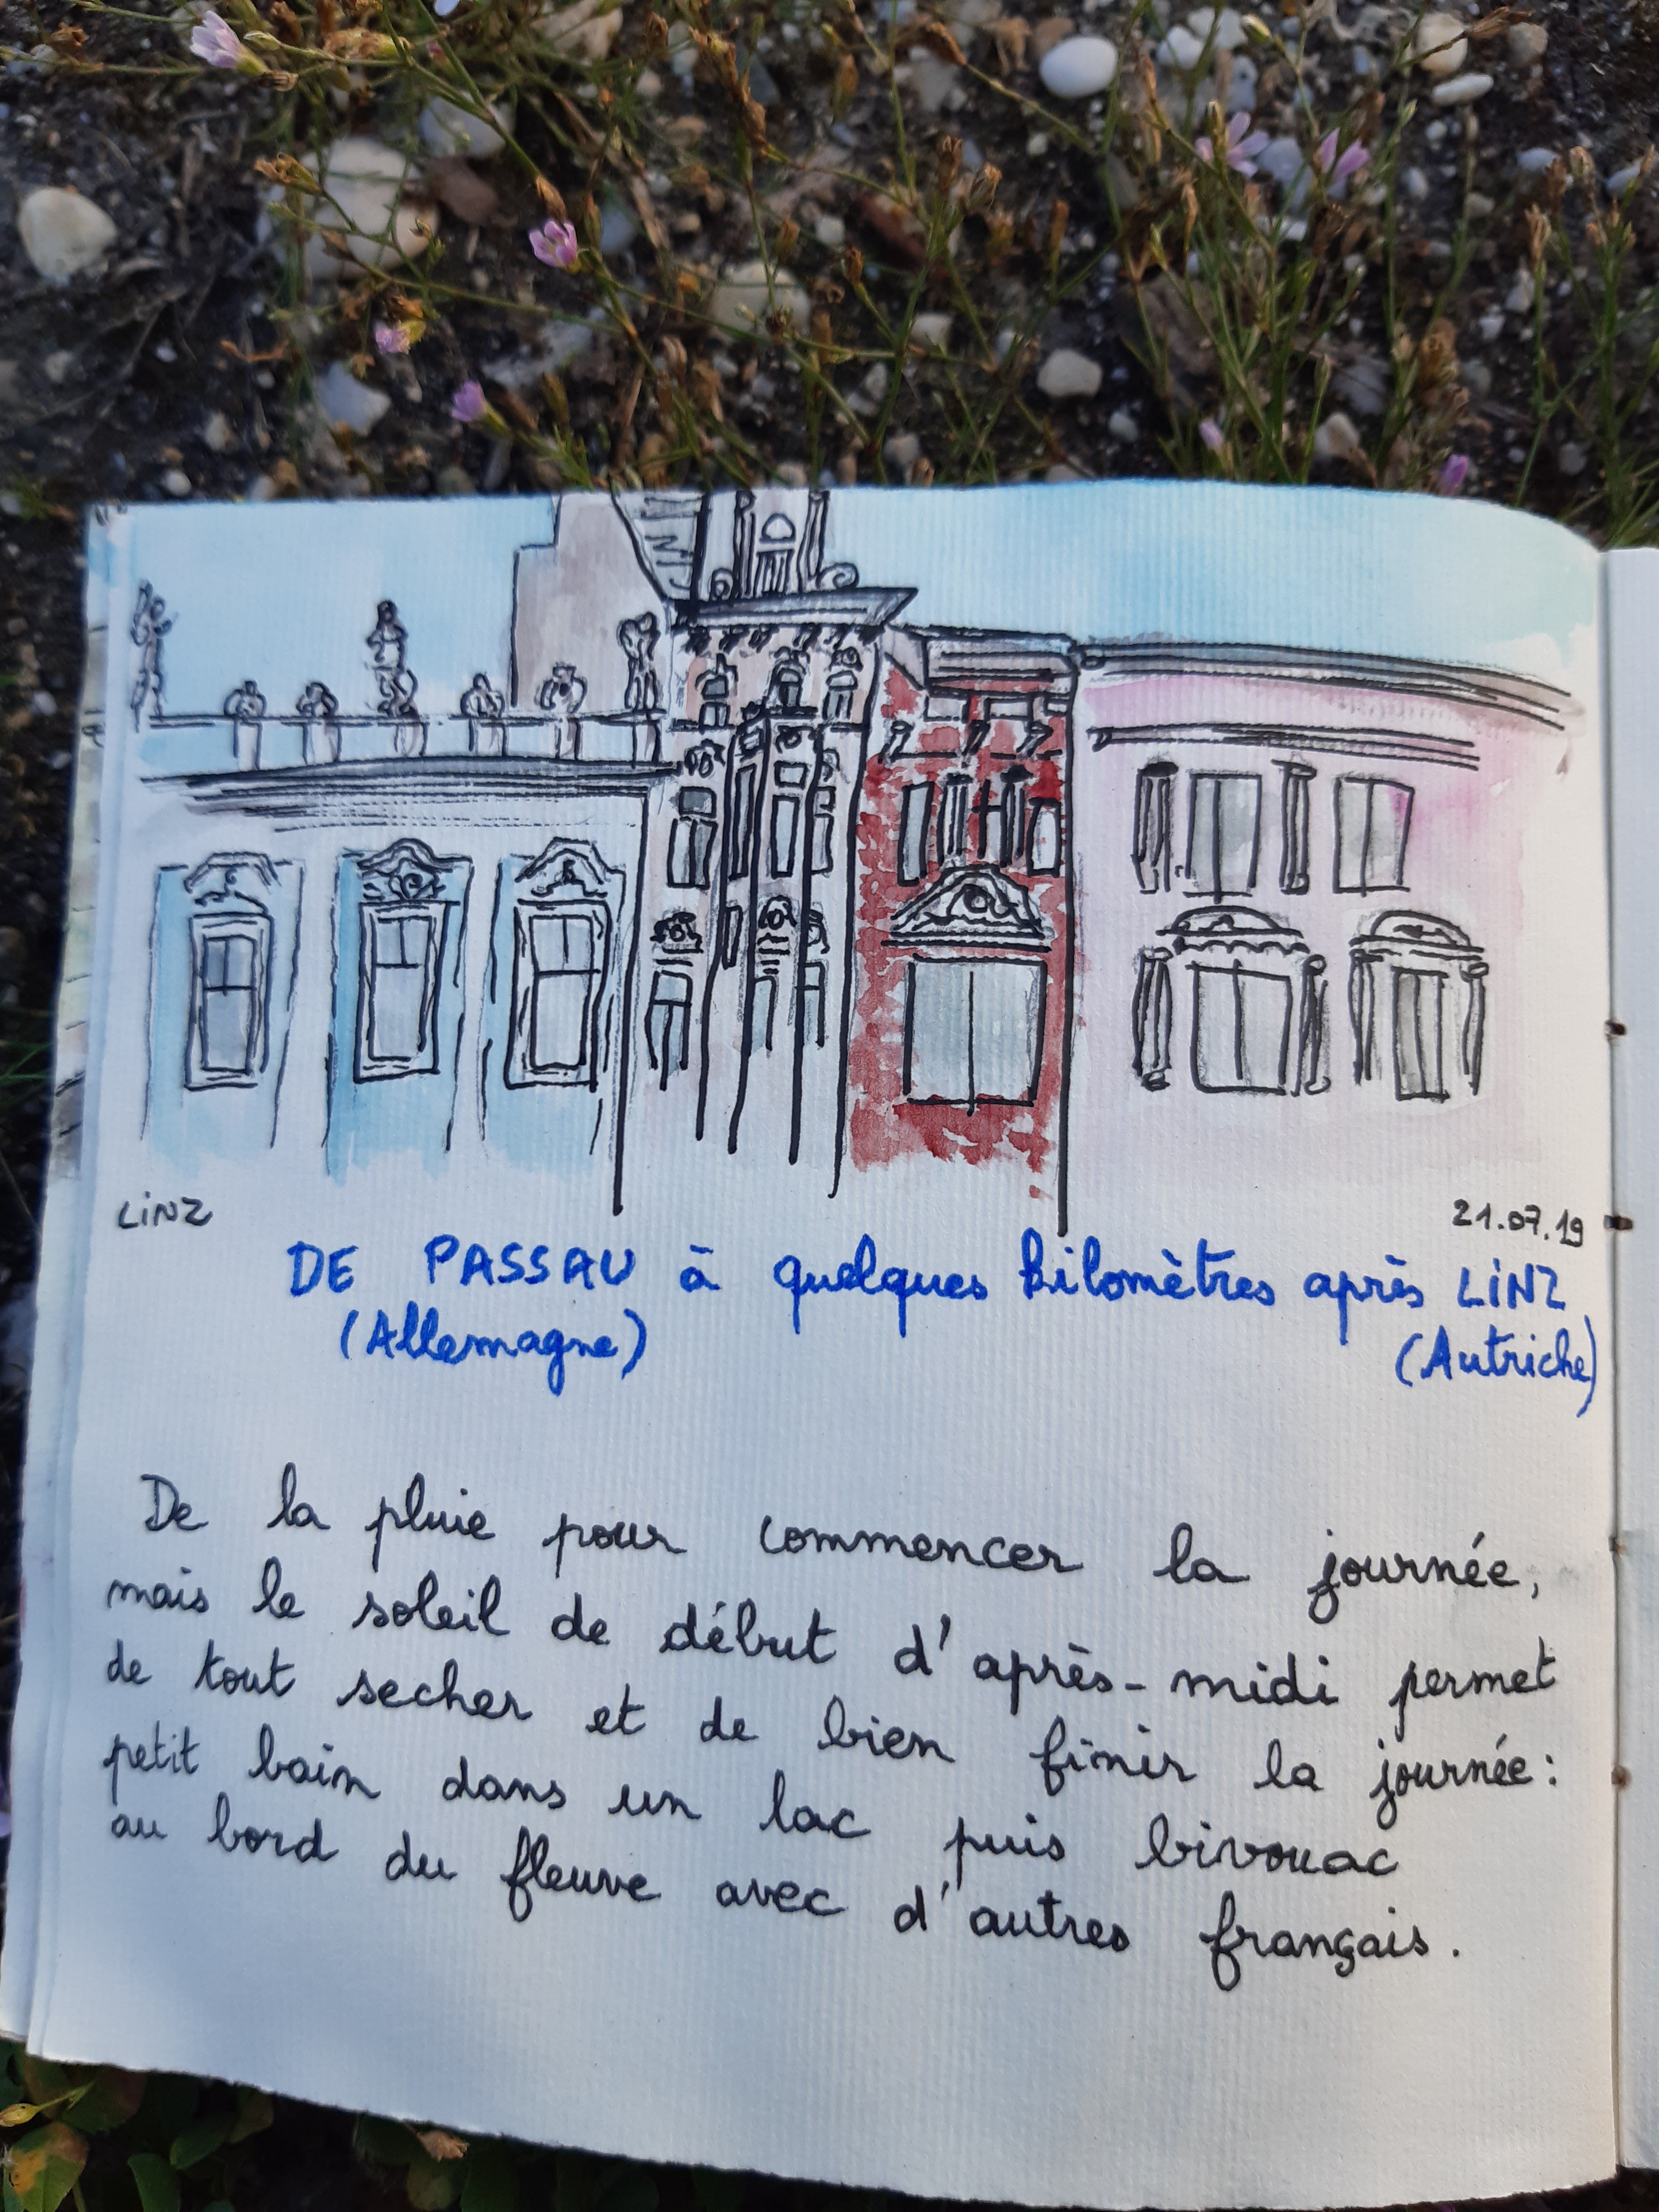 LiNZ
21.07.19
DE PASSAU à quelques kilomètres après LiNZ
(Allemagne) (Autriche)
De la pluie pour commencer la journée,
mais le soleil de début d'après-midi permet
de tout secher et de bien finir la journée :
petit bain dans un lac puis bivouac
au bord du fleuve avec d'autres français.